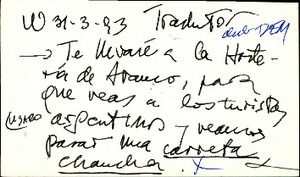 W 31-3-93 Traductor
→ Te llevaré a la Hoste-
ría de Arauco, para
que veas a los turistas
argentinos y veamos
pasar una carreta
chancha.